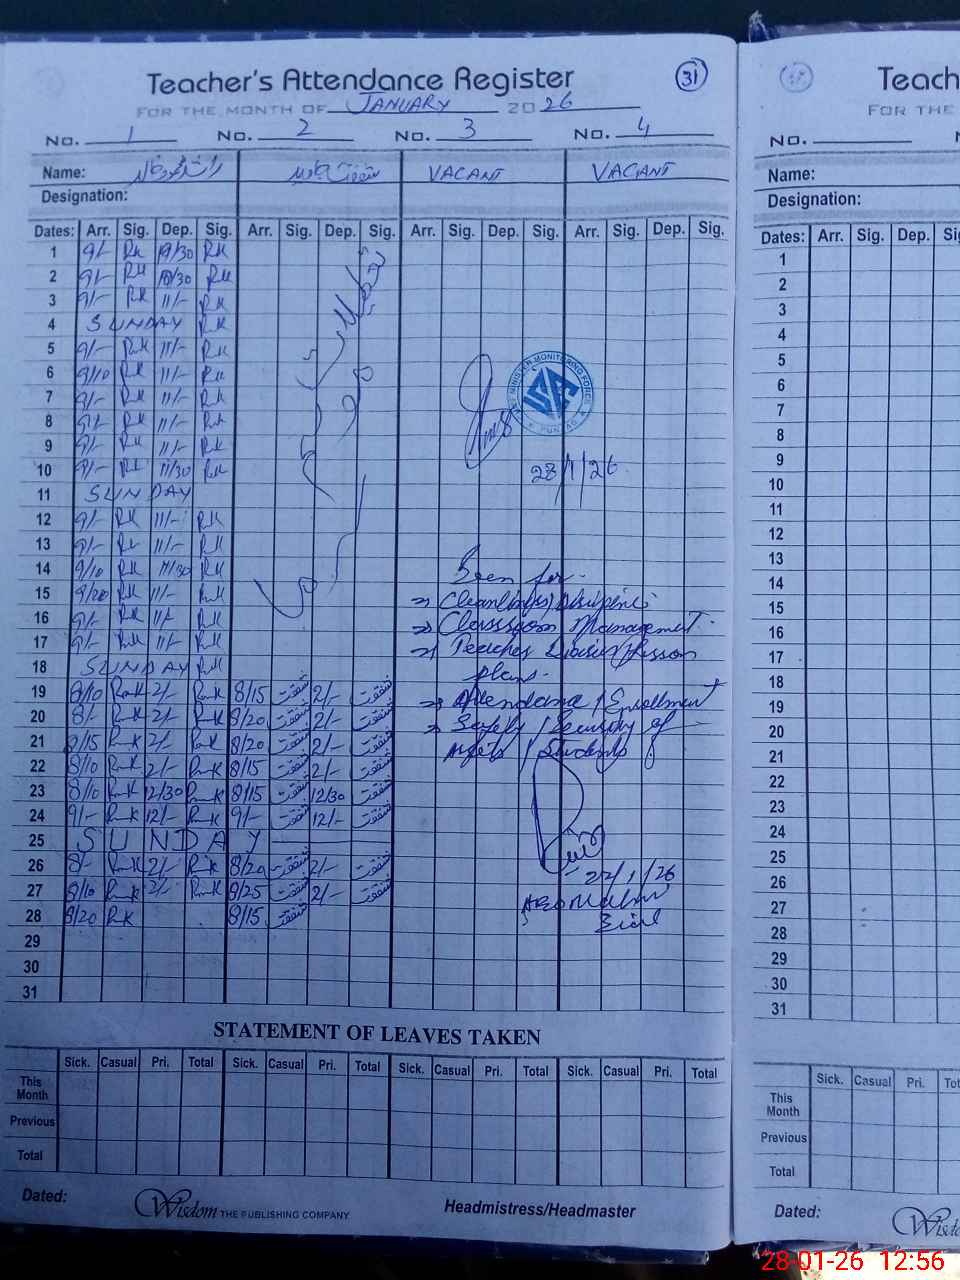 31
Teacher's Attendance Register
FOR THE MONTH OF JANUARY 2026
No. 1 No. 2 No. 3 No. 4
Name: VACANT VACANT
Designation:
Dates: Arr. Sig. Dep. Sig. Arr. Sig. Dep. Sig. Arr. Sig. Dep. Sig. Arr. Sig. Dep. Sig.
1 9/- RK RK
2 9/- RK RK
3 9/- RK 11/- RK
4 SUNDAY RK
5 9/- RK 11/- RK
6 9/10 RK 11/- RK
7 9/- RK 11/- RK
8 9/- RK 11/- RK
9 9/- RK 11/- RK
10 9/- RK 11/30 RK
11 SUNDAY
12 9/- RK 11/- RK
13 9/- RK 11/- RK
14 9/10 RK 11/30 RK
15 9/20 RK 11/- RK
16 9/- RK 11/- RK
17 9/- RK 11/- RK
18 SUNDAY RK
19 8/10 RK 2/- RK 8/15 شفقت 2/- شفقت
20 8/- RK 2/- RK 8/20 شفقت 2/- شفقت
21 8/15 RK 2/- RK 8/20 شفقت 2/- شفقت
22 8/10 RK 2/- RK 8/15 شفقت 2/- شفقت
23 8/10 RK 12/30 RK 8/15 شفقت 12/30 شفقت
24 9/- RK 12/- RK 9/- شفقت 12/- شفقت
25 SUNDAY
26 8/- RK 2/- RK 8/20 شفقت 2/- شفقت
27 8/10 RK 2/- RK 8/25 شفقت 2/- شفقت
28 8/20 RK 8/15 شفقت
29
30
31
CHIEF MINISTER MONITORING FORCE PUNJAB
28/1/26
Seen for
Cleanliness/Discipline
Classroom Management
Teacher Diaries/Lesson
plans.
Attendance/Enrollment
Safety/Security of
Assets/Students
22/1/26
STATEMENT OF LEAVES TAKEN
Sick. Casual Pri. Total Sick. Casual Pri. Total Sick. Casual Pri. Total Sick. Casual Pri. Total
This Month
Previous
Total
Dated:
Wisdom THE PUBLISHING COMPANY
Headmistress/Headmaster
Teach
FOR THE
No.
Name:
Designation:
Dates: Arr. Sig. Dep.
1
2
3
4
5
6
7
8
9
10
11
12
13
14
15
16
17
18
19
20
21
22
23
24
25
26
27
28
29
30
31
Sick. Casual Pri.
This Month
Previous
Total
Dated:
28-01-26 12:56